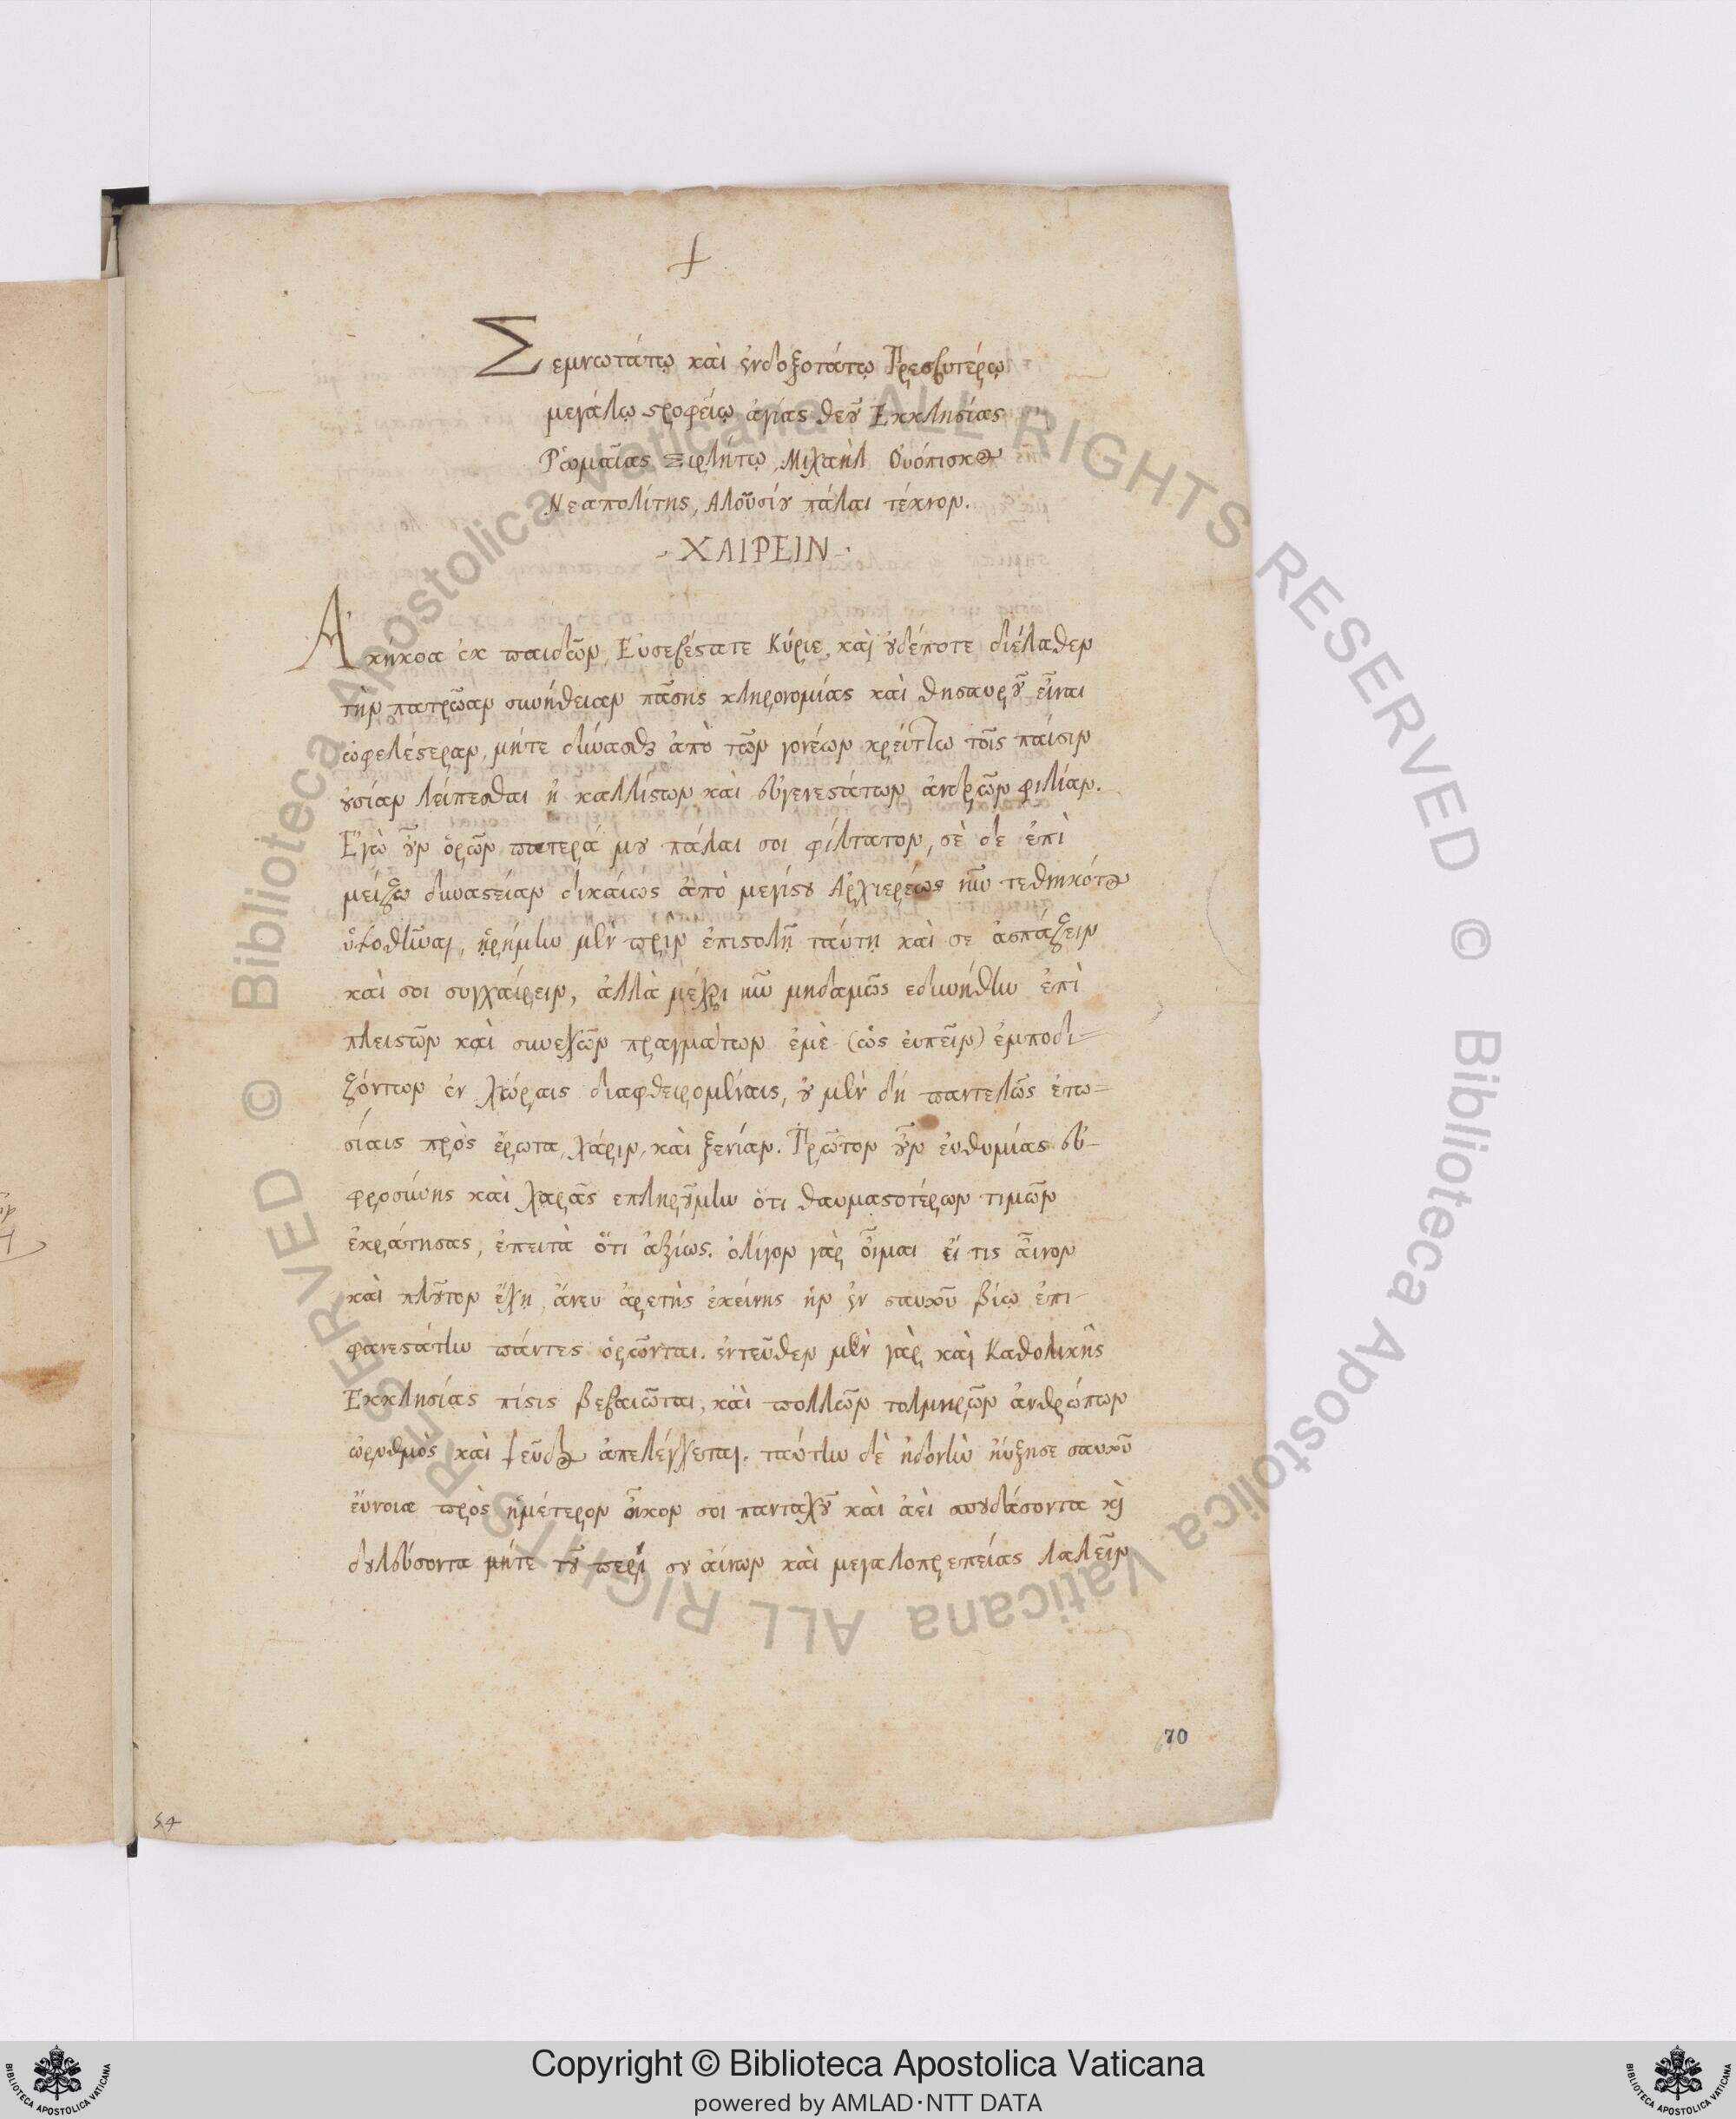 Σεμνωτάτῳ καὶ ἐνδοξοτάτῳ Πρεσβυτέρῳ
μεγάλῳ στροφείῳ ἁγίας θεοῦ Ἐκκλησίας
Ῥωμαίας Σιρλήτῳ, Μιχαὴλ Οὐόπισκος
Νεαπολίτης, Αλοῦσίου πάλαι τέκνον.
ΧΑΙΡΕΙΝ
Ἀκηκοα ἐκ παιδῶν, Εὐσεβέστατε Κύριε, καὶ οὐδέποτε διέλαθεν
τὴν πατρῶαν συνήθειαν πᾶσης κληρονομίας καὶ θησαυροῦ εἶναι
ὠφελέστεραν, μήτε δύνασθαι ἀπὸ τῶν γονέων κρείττω τοῖς παίσιν
οὐσίαν λείπεσθαι ἢ καλλίστων καὶ εὐγενεστάτων ἀνδρῶν φιλίαν.
Ἐγὼ οὖν ὁρῶν πατερά μου πάλαι σοι φίλτατον, σὲ δε ἐπὶ
μείζω δυναστείαν δικαίως ἀπὸ μεγίστου Ἀρχιερέως νῦν τεθνηκότος
ὑψοθῆναι, ᾑρήμην μὲν πρὶν ἐπιστολῇ ταύτῃ καὶ σε ἀσπάζειν
καὶ σοι συγχαίρειν, ἀλλὰ μέχρι νῦν μηδαμῶς εδυνήθην ἐπὶ
πλειστῶν καὶ συνεχῶν πραγμάτων ἐμὲ (ὡς εἰπεῖν) ἐμποδι-
ζόντων ἐν χώραις διαφθειρομέναις, οὐ μὲν δή παντελῶς ἐτω-
σίαις πρὸς ἔρωτα, χάριν, καὶ ξενίαν. Πρῶτον οὖν εὐθυμίας εὐ-
φροσύνης καὶ χαρᾶς επληρούμην ὅτι θαυμαστοτέρων τιμῶν
ἐκράτησας, ἐπειτὰ ὅτι ἀξίως. ὀλίγον γὰρ οἶμαι εἴ τις αἶνον
καὶ πλοῦτον ἔχῃ, ἄνευ ἀρετὴς ἐκείνης ἣν ἐν σαυτοῦ βίῳ ἐπι-
φανεστάτην πάντες ὁρῶνται. ἐντεῦθεν μὲν γὰρ καὶ Καθολικῆς
Ἐκκλησίας πίστις βεβαιῶται, καὶ πολλῶν τολμηρῶν ἀνθρώπων
ὠρυθμὸς καὶ ψεῦδος ἀπελέγχεται. ταύτην δὲ ἡδονὴν ηὔξησε σαυτοῦ
εὔνοια πρὸς ἡμέτερον οἶκον σοι πανταχοῦ καὶ ἀεὶ σπουδάσοντα καὶ
δουλεύσοντα μήτε τοῦ περὶ σου αἴνων καὶ μεγαλοπρεπείας λαλεῖν
70
54
Copyright © Biblioteca Apostolica Vaticana
powered by AMLAD·NTT DATA